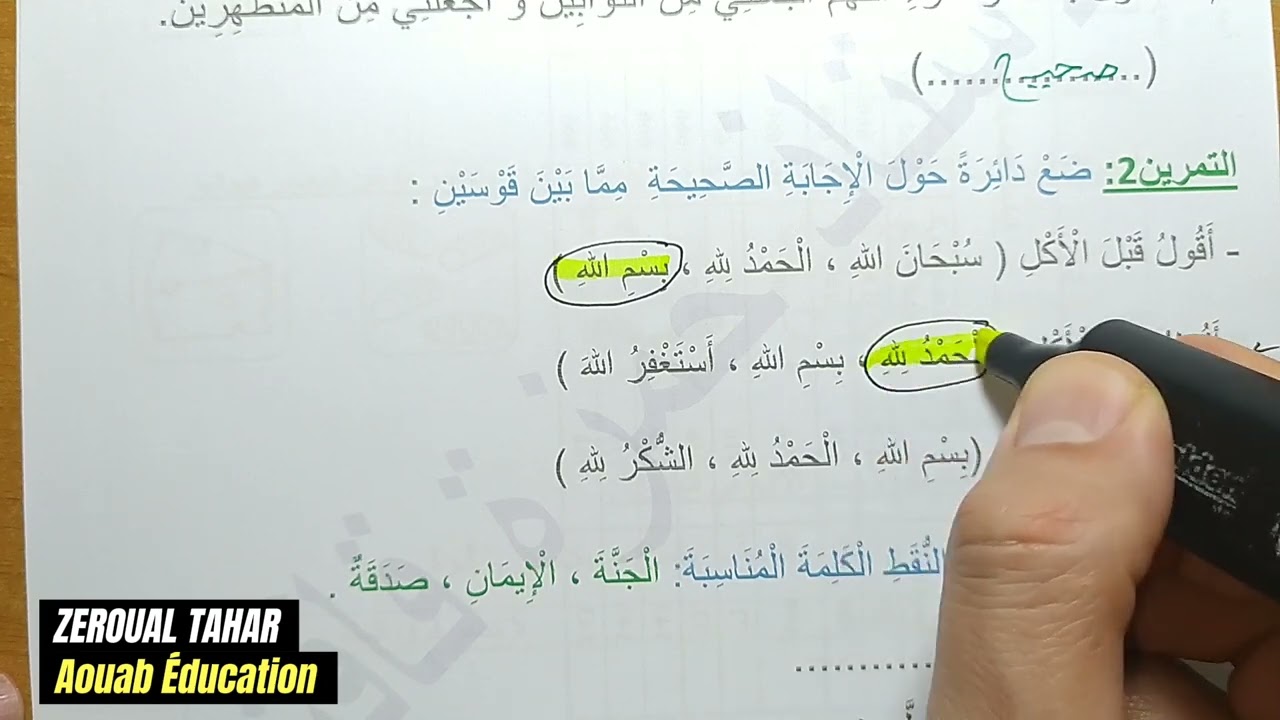 اجعلني مِنَ التَّوَّابِينَ وَ اجْعَلْنِي مِنَ الْمُتَطَهِّرِينَ.
(....صحيح....)
التمرين2: ضَعْ دَائِرَةً حَوْلَ الْإِجَابَةِ الصَّحِيحَةِ مِمَّا بَيْنَ قَوْسَيْنِ :
- أَقُولُ قَبْلَ الْأَكْلِ ( سُبْحَانَ اللهِ ، الْحَمْدُ لِلهِ ، بِسْمِ اللهِ )
الْحَمْدُ لِلهِ ، بِسْمِ اللهِ ، أَسْتَغْفِرُ اللهَ )
(بِسْمِ اللهِ ، الْحَمْدُ لِلهِ ، الشُّكْرُ لِلهِ )
النُّقَطِ الْكَلِمَةَ الْمُنَاسِبَةَ: الْجَنَّةَ ، الْإِيمَانِ ، صَدَقَةٌ .
ZEROUAL TAHAR
Aouab Éducation